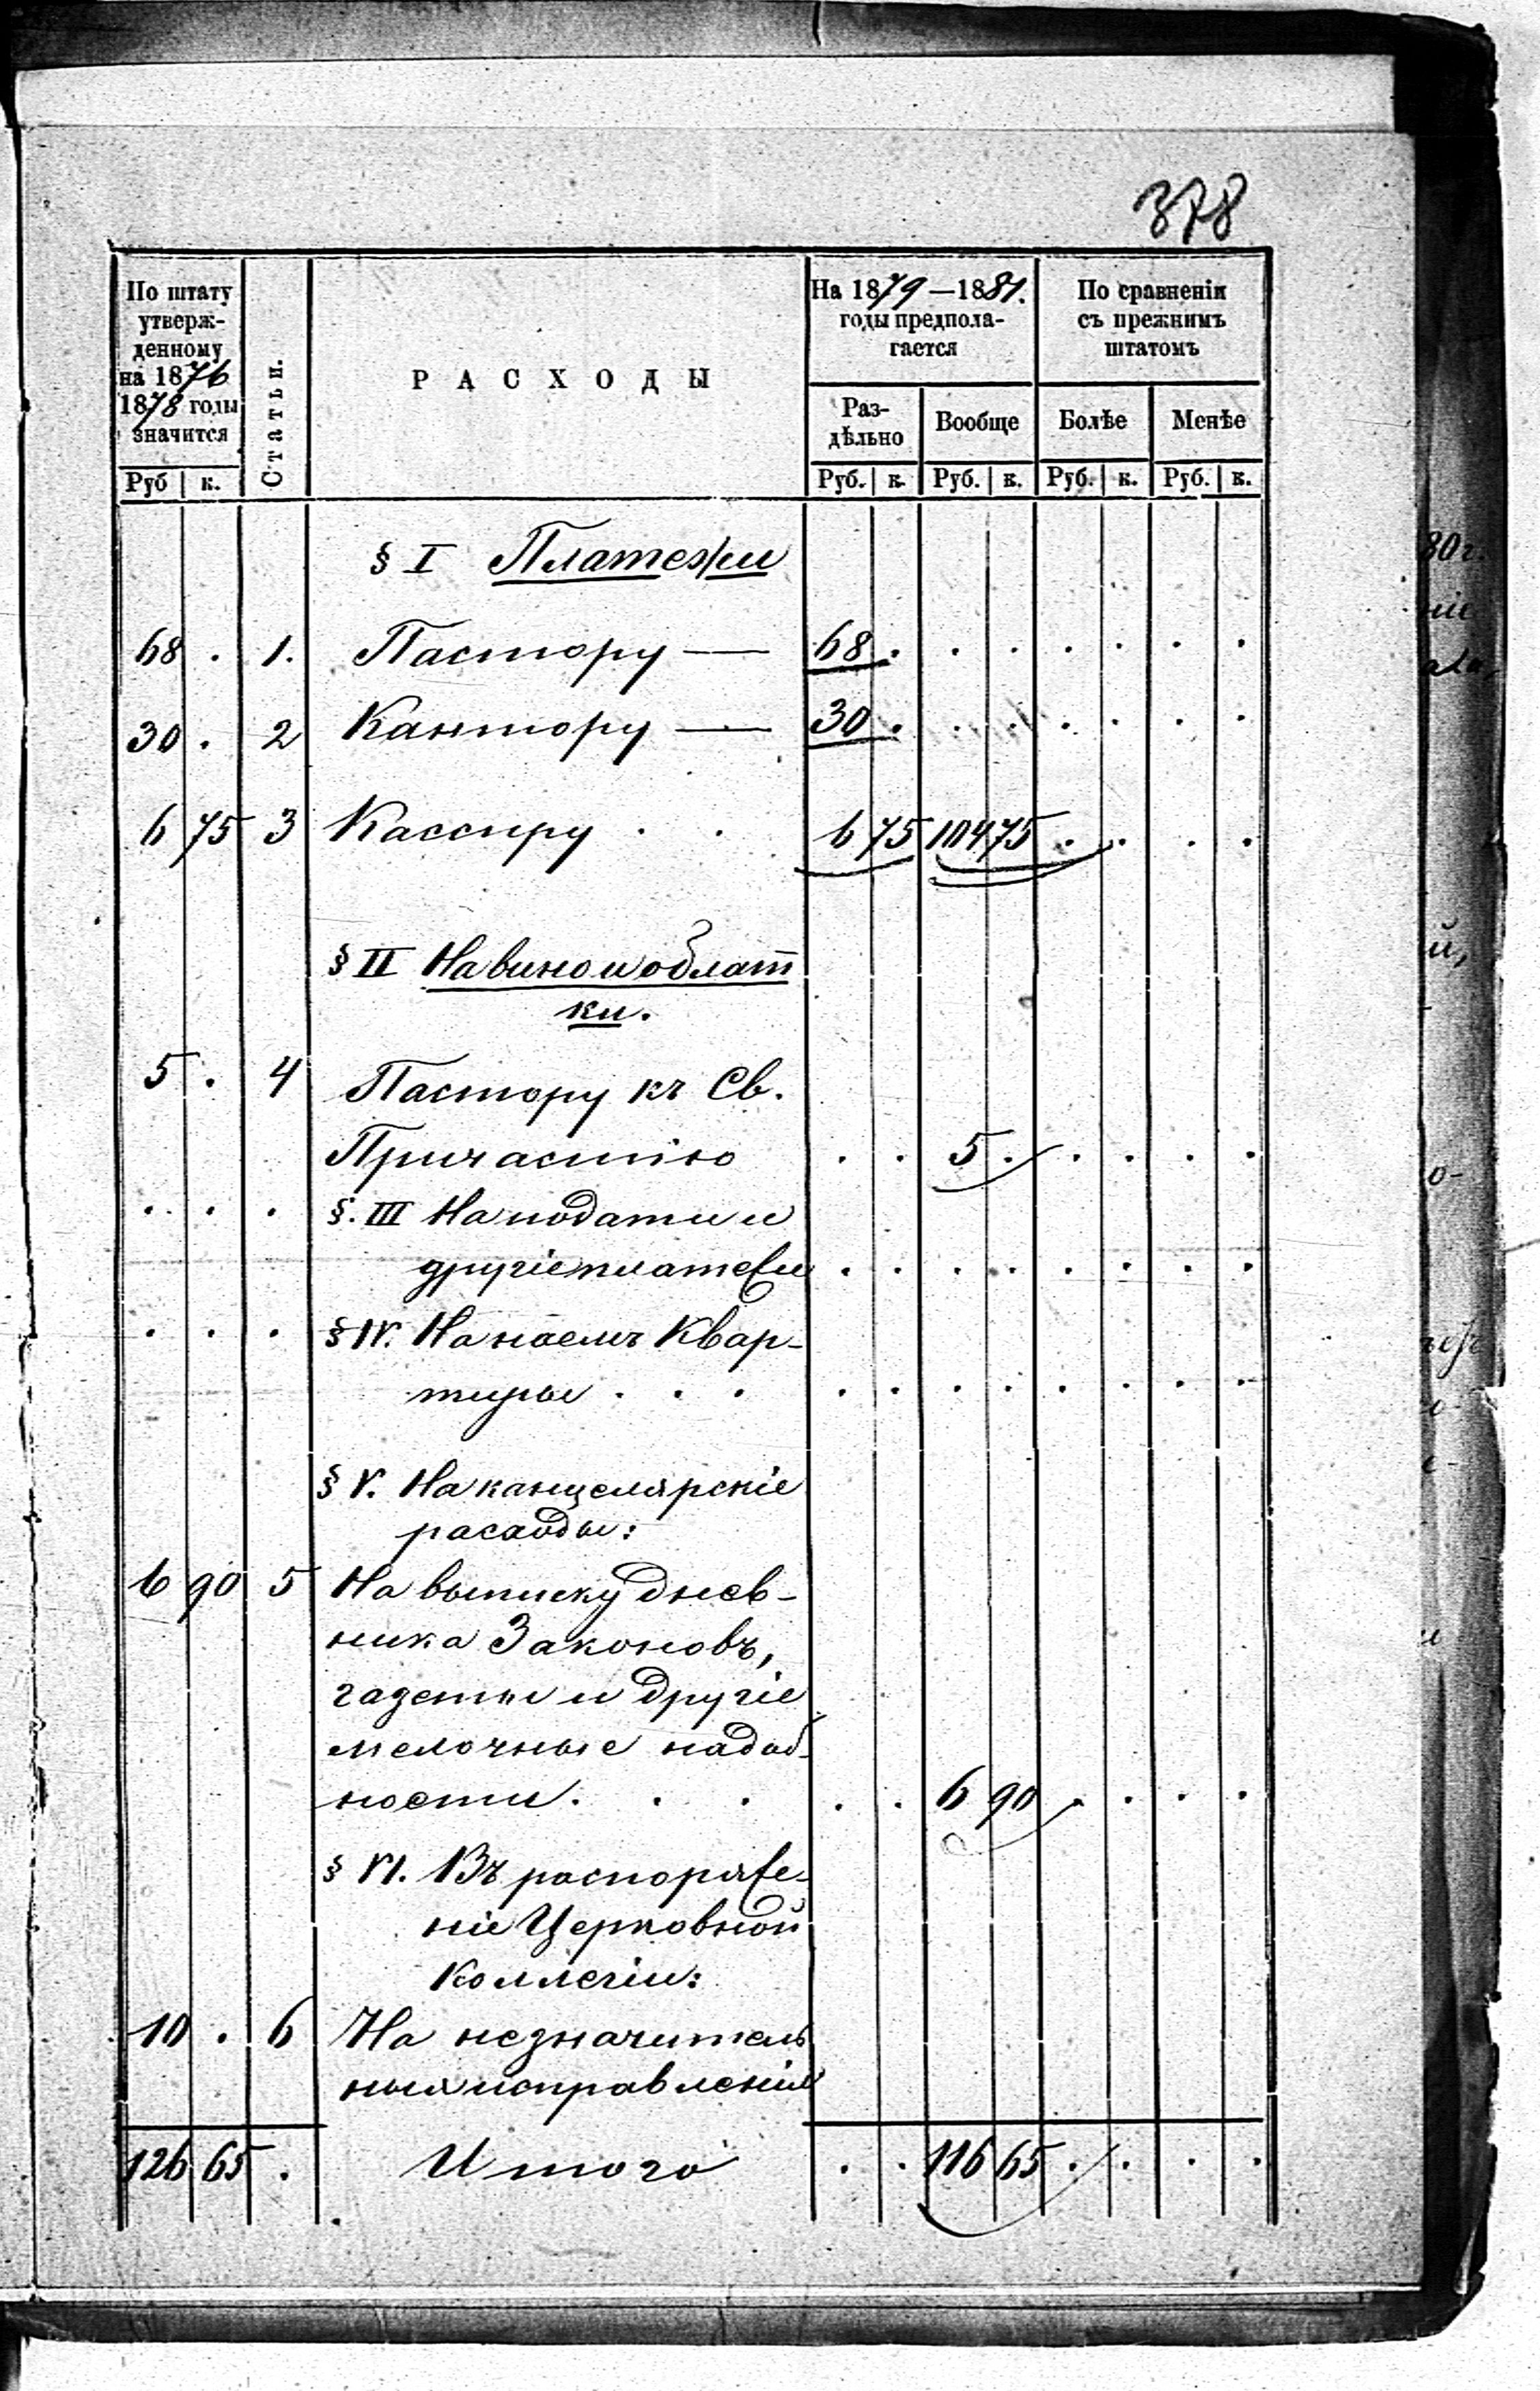 378
По штату утверж-денному на 1876 1878 годы значится
Статьи.
РАСХОДЫ
На 1879—1881. годы предпола-гается
По сравненію съ прежнимъ штатомъ
Раз-дѣльно Вообще Болѣе Менѣе
Руб к. Руб. к. Руб. к. Руб. к. Руб. к.
§ I Платежи
68 . 1. Пастору — 68 . . . . . . .
30 . 2 Кантору — 30 . . . . . . .
6 75 3 Кассиру . . 6 75 104 75 . . . .
§ II На вино и облат
ки.
5 . 4 Пастору къ Св.
Причастію . . 5 . . . . .
. . . §. III На подати и
другіе платежи . . . . . . . .
. . . § IV. На наемъ Квар-
тиры . . . . . . . . . . .
§ V. На канцелярскіе
расходы:
6 90 5 На выписку днев-
ника Законовъ,
газеты и другіе
мелочные надоб-
ности . . . . . 6 90 . . . .
§ VI. Въ распоряже-
ніе Церковной
Коллегіи:
10 . 6 На незначитель
ныя исправленія
126 65 . Итого . . 116 65 . . . .